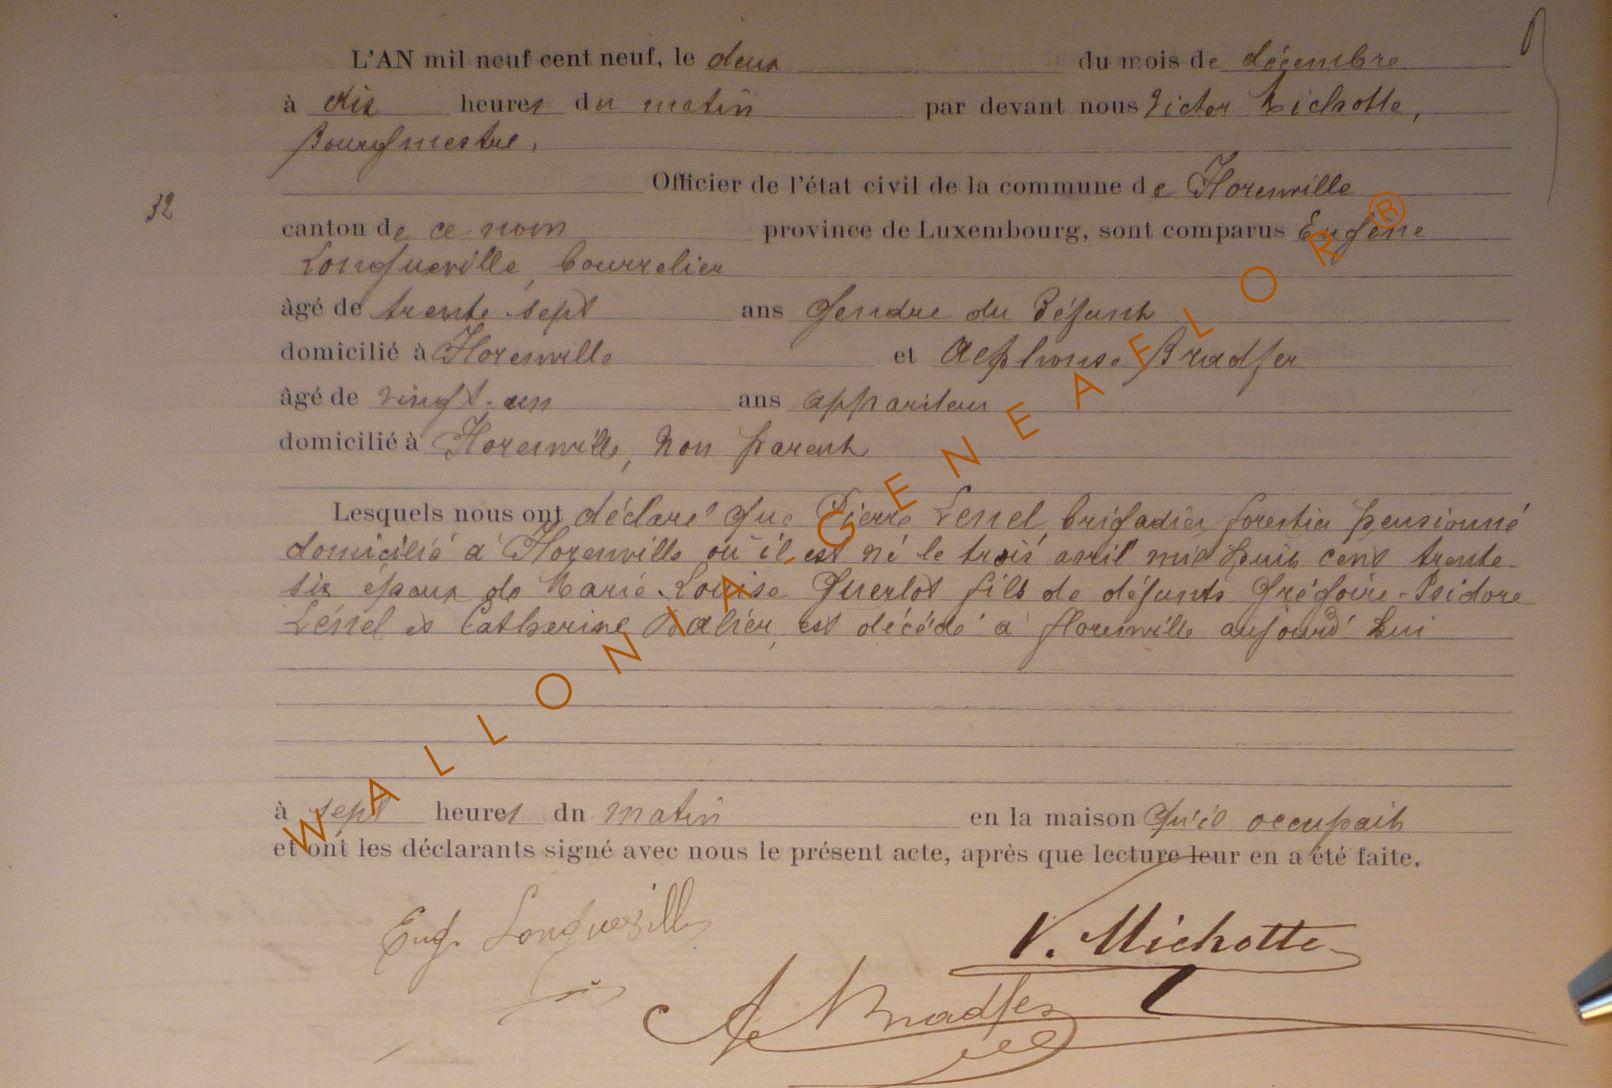 L'AN mil neuf cent neuf, le deux du mois de décembre
à dix heures du matin par devant nous Victor Michotte,
Bourgmestre,
Officier de l'état civil de la commune de Florenville
32
canton de ce nom province de Luxembourg, sont comparus Eugène
Longueville, bourrelier
âgé de trente-sept ans gendre du défunt
domicilié à Florenville et Alphonse Bradfer
âgé de vingt-un ans appariteur
domicilié à Florenville, non parent
Lesquels nous ont déclaré que Pierre Lénel brigadier forestier pensionné
domicilié à Florenville où il est né le trois avril mil huit cent trente-
six époux de Marie-Louise Guerlot fils de défunts Grégoire-Isidore
Lénel et Catherine est décédé à Florenville aujourd'hui
à sept heures du matin en la maison qu'il occupait
et ont les déclarants signé avec nous le présent acte, après que lecture leur en a été faite.
Eug. Longueville
V. Michotte
A Bradfer
WALLONIA - GENEAFLOR ®